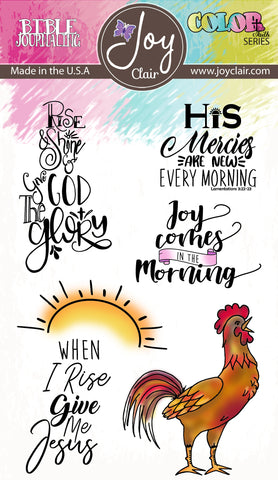 BIBLE
JOURNALING
Joy
Clair
COLOR
Faith
SERIES
Made in the U.S.A
www.joyclair.com
RISE
& Shine
Give GOD
THE
Glory
HiS
Mercies
ARE NEW
EVERY MORNING
Lamentations 3:22-23
Joy
comes
IN THE
Morning
WHEN
I Rise
Give
Me
Jesus